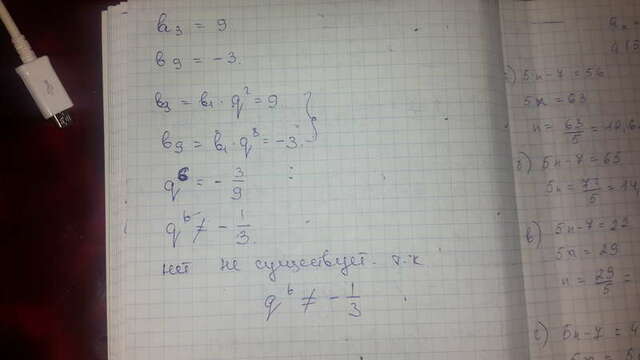 b₃ = 9
b₉ = -3.
b₃ = b₁ · q² = 9
b₉ = b₁ · q⁸ = -3
q⁶ = - 3/9
q⁶ ≠ - 1/3.
нет не существует. т.к
q⁶ ≠ - 1/3
5n-7=56
5n=63
n= 63/5 =12,6
б) 5n-7=65
5n= 72/5 =14,
в) 5n-7=22
5n=29
n= 29/5 =
г) 5n-7=